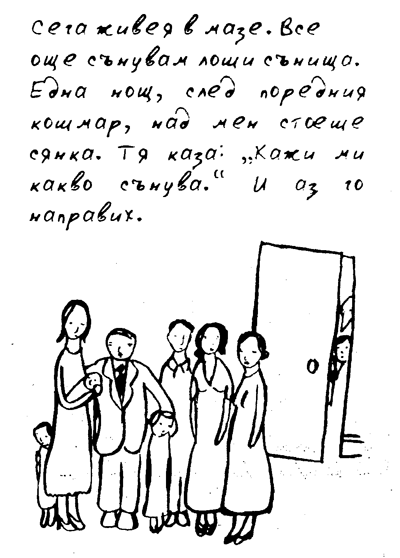 Сега живея в мазе. Все
още сънувам лоши сънища.
Една нощ, след поредния
кошмар, над мен стоеше
сянка. Тя каза: „Кажи ми
какво сънува.“ И аз го
направих.